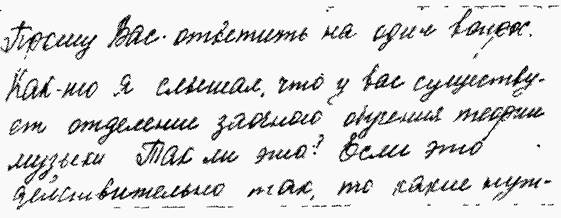 Прошу Вас ответить на один вопрос.
Как-то я слышал, что у вас существу-
ет отделение заочного обучения теории
музыки Так ли это? Если это
действительно так, то какие нуж-